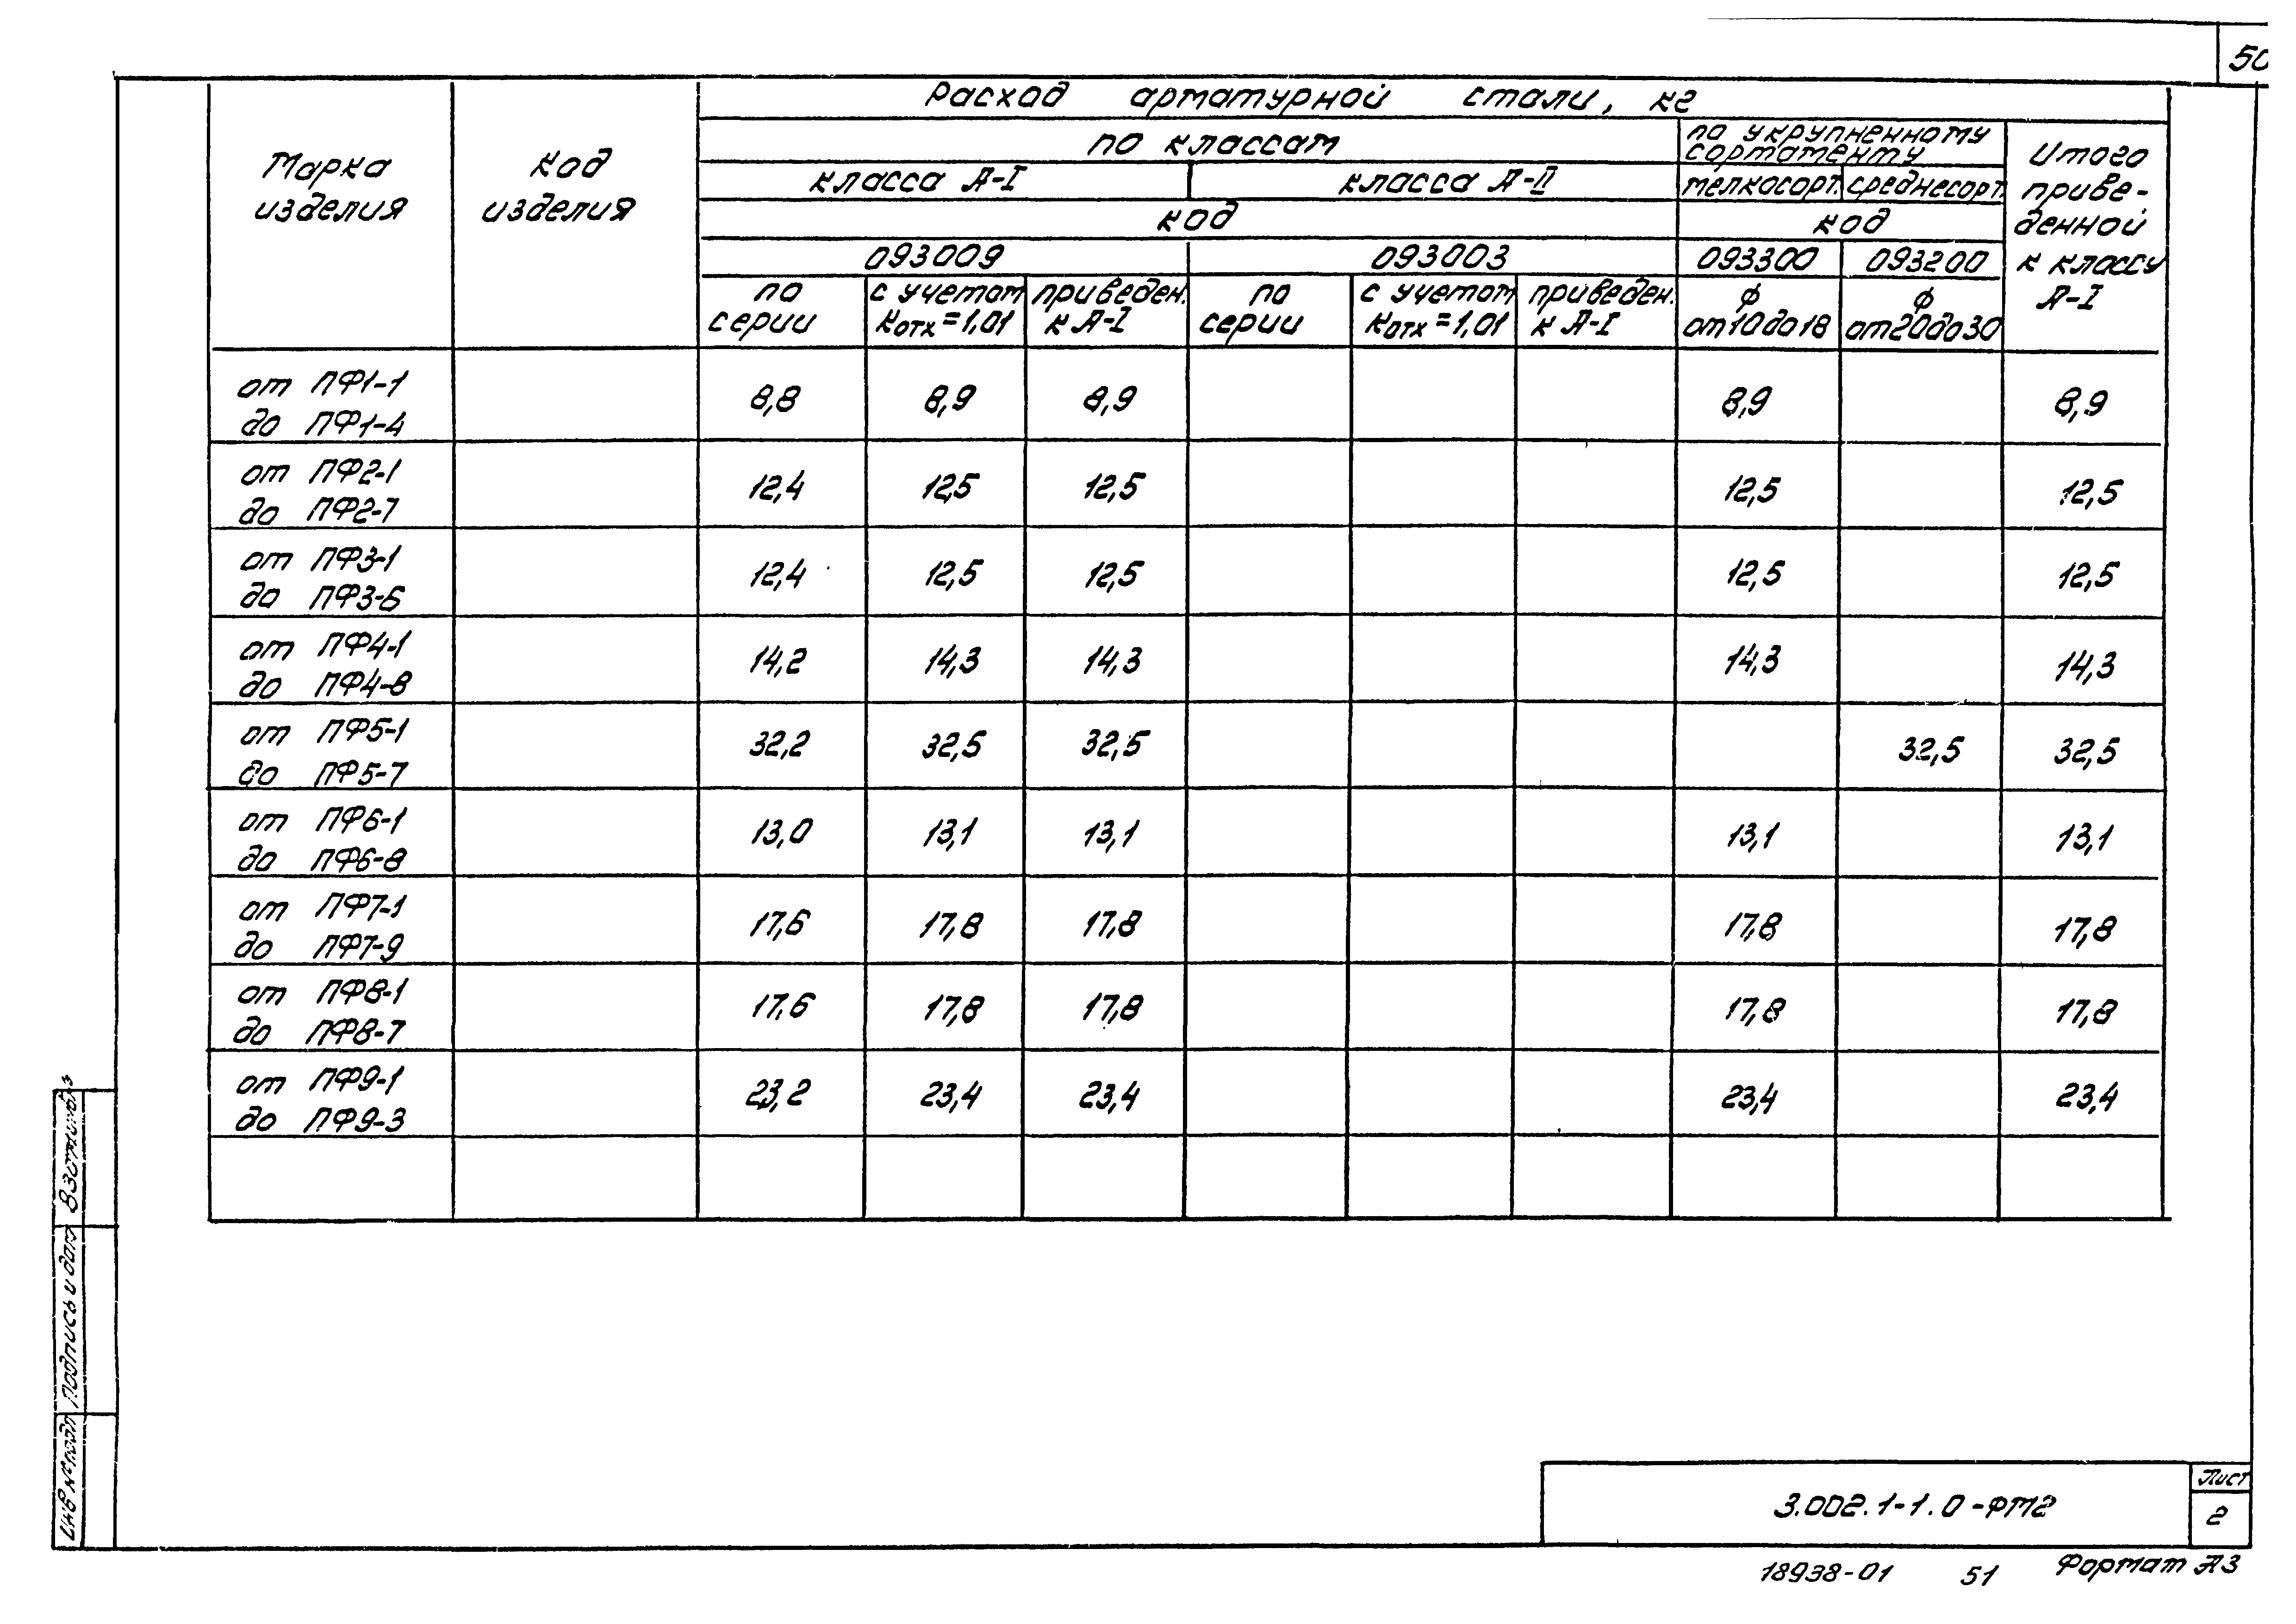 50
Марка изделия
Код изделия
Расход арматурной стали, кг
по классам
по укрупненному сортаменту
Итого приве-
денной
к классу
А-I
класса А-I
класса А-II
мелкосорт.
среднесорт.
код
код
093009
093003
093300
093200
по серии
с учетом Котх=1,01
приведен. к А-I
по серии
с учетом Котх=1,01
приведен. к А-I
ф от10до18
ф от20до30
от ПФ1-1
до ПФ1-4
8,8 8,9 8,9 8,9 8,9
от ПФ2-1
до ПФ2-7
12,4 12,5 12,5 12,5 12,5
от ПФ3-1
до ПФ3-6
12,4 12,5 12,5 12,5 12,5
от ПФ4-1
до ПФ4-8
14,2 14,3 14,3 14,3 14,3
от ПФ5-1
до ПФ5-7
32,2 32,5 32,5 32,5 32,5
от ПФ6-1
до ПФ6-8
13,0 13,1 13,1 13,1 13,1
от ПФ7-1
до ПФ7-9
17,6 17,8 17,8 17,8 17,8
от ПФ8-1
до ПФ8-7
17,6 17,8 17,8 17,8 17,8
от ПФ9-1
до ПФ9-3
23,2 23,4 23,4 23,4 23,4
Подпись и дат
Инв №подл
3.002.1-1.0-ФМ2
Лист
2
18938-01 51 Формат А3